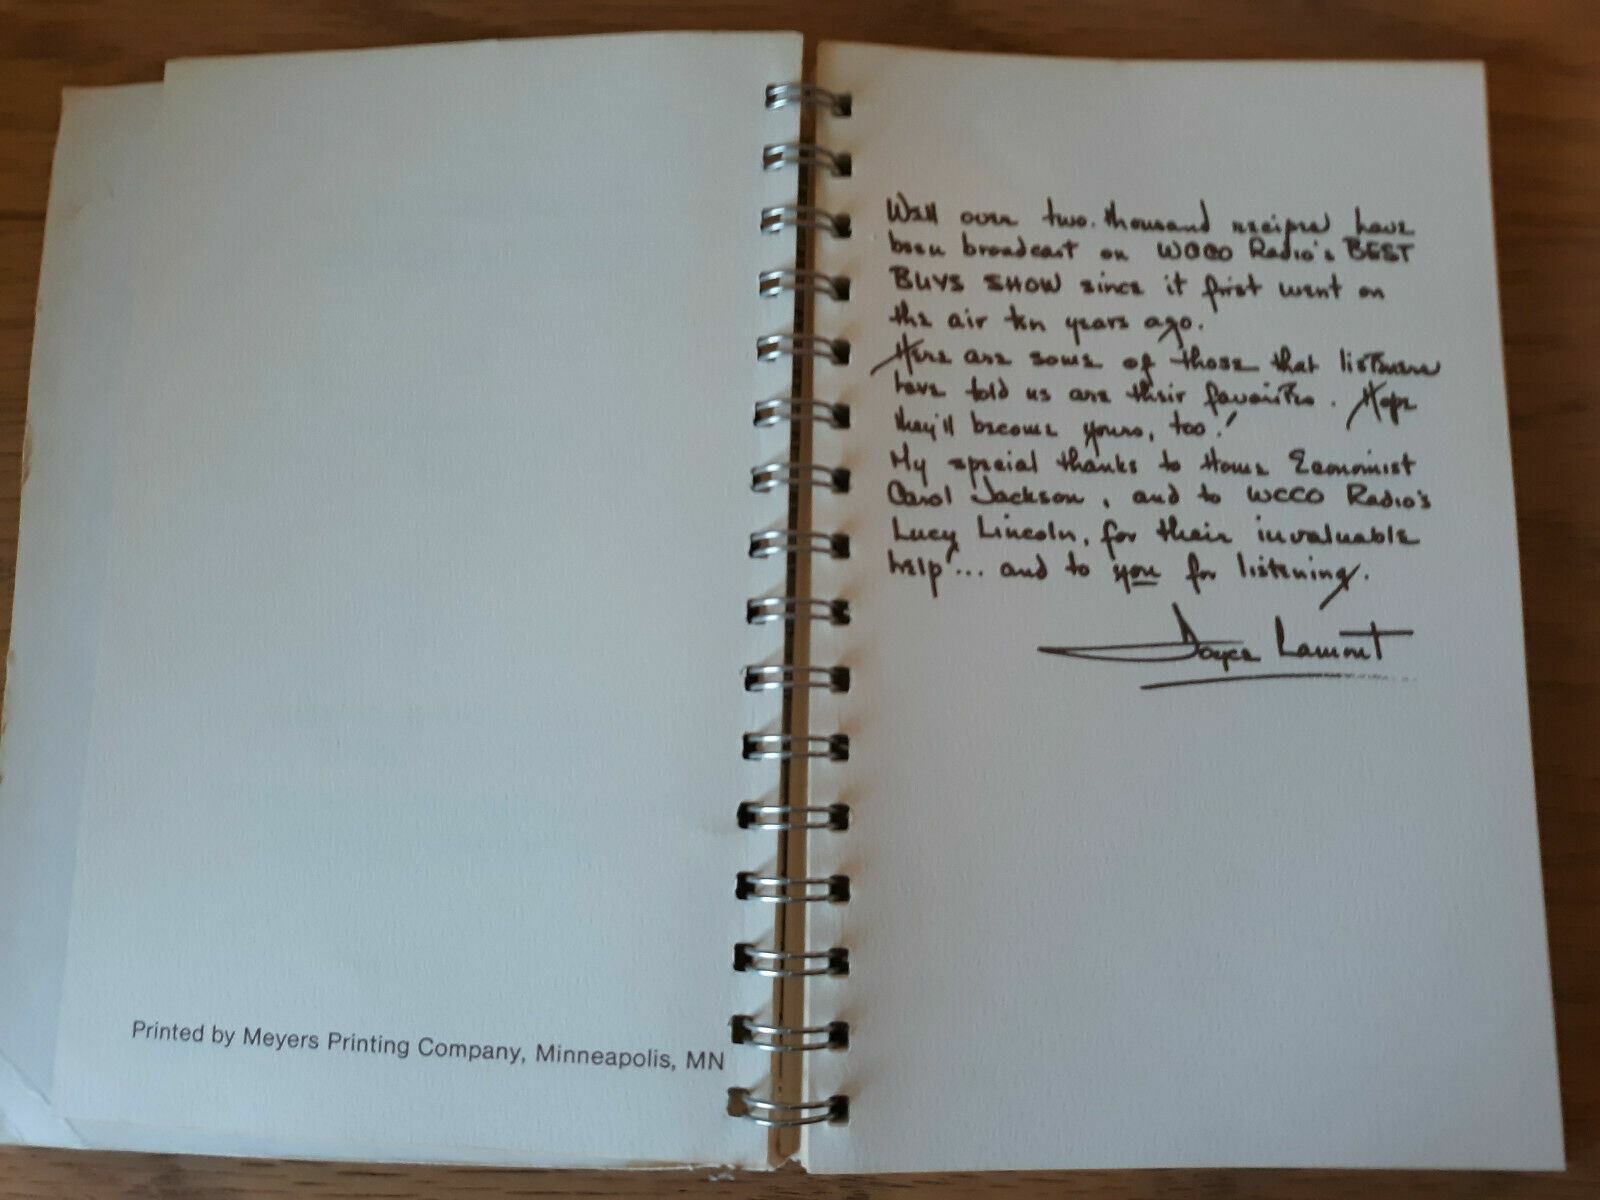 Printed by Meyers Printing Company, Minneapolis, MN
Well over two thousand recipes have
been broadcast on WCCO Radio's BEST
BUYS SHOW since it first went on
the air ten years ago.
Here are some of those that listeners
have told us are their favorites. Hope
they'll become yours, too!
My special thanks to Home Economist
Carol Jackson, and to WCCO Radio's
Lucy Lincoln, for their invaluable
help... and to you for listening.
Joyce Lamont